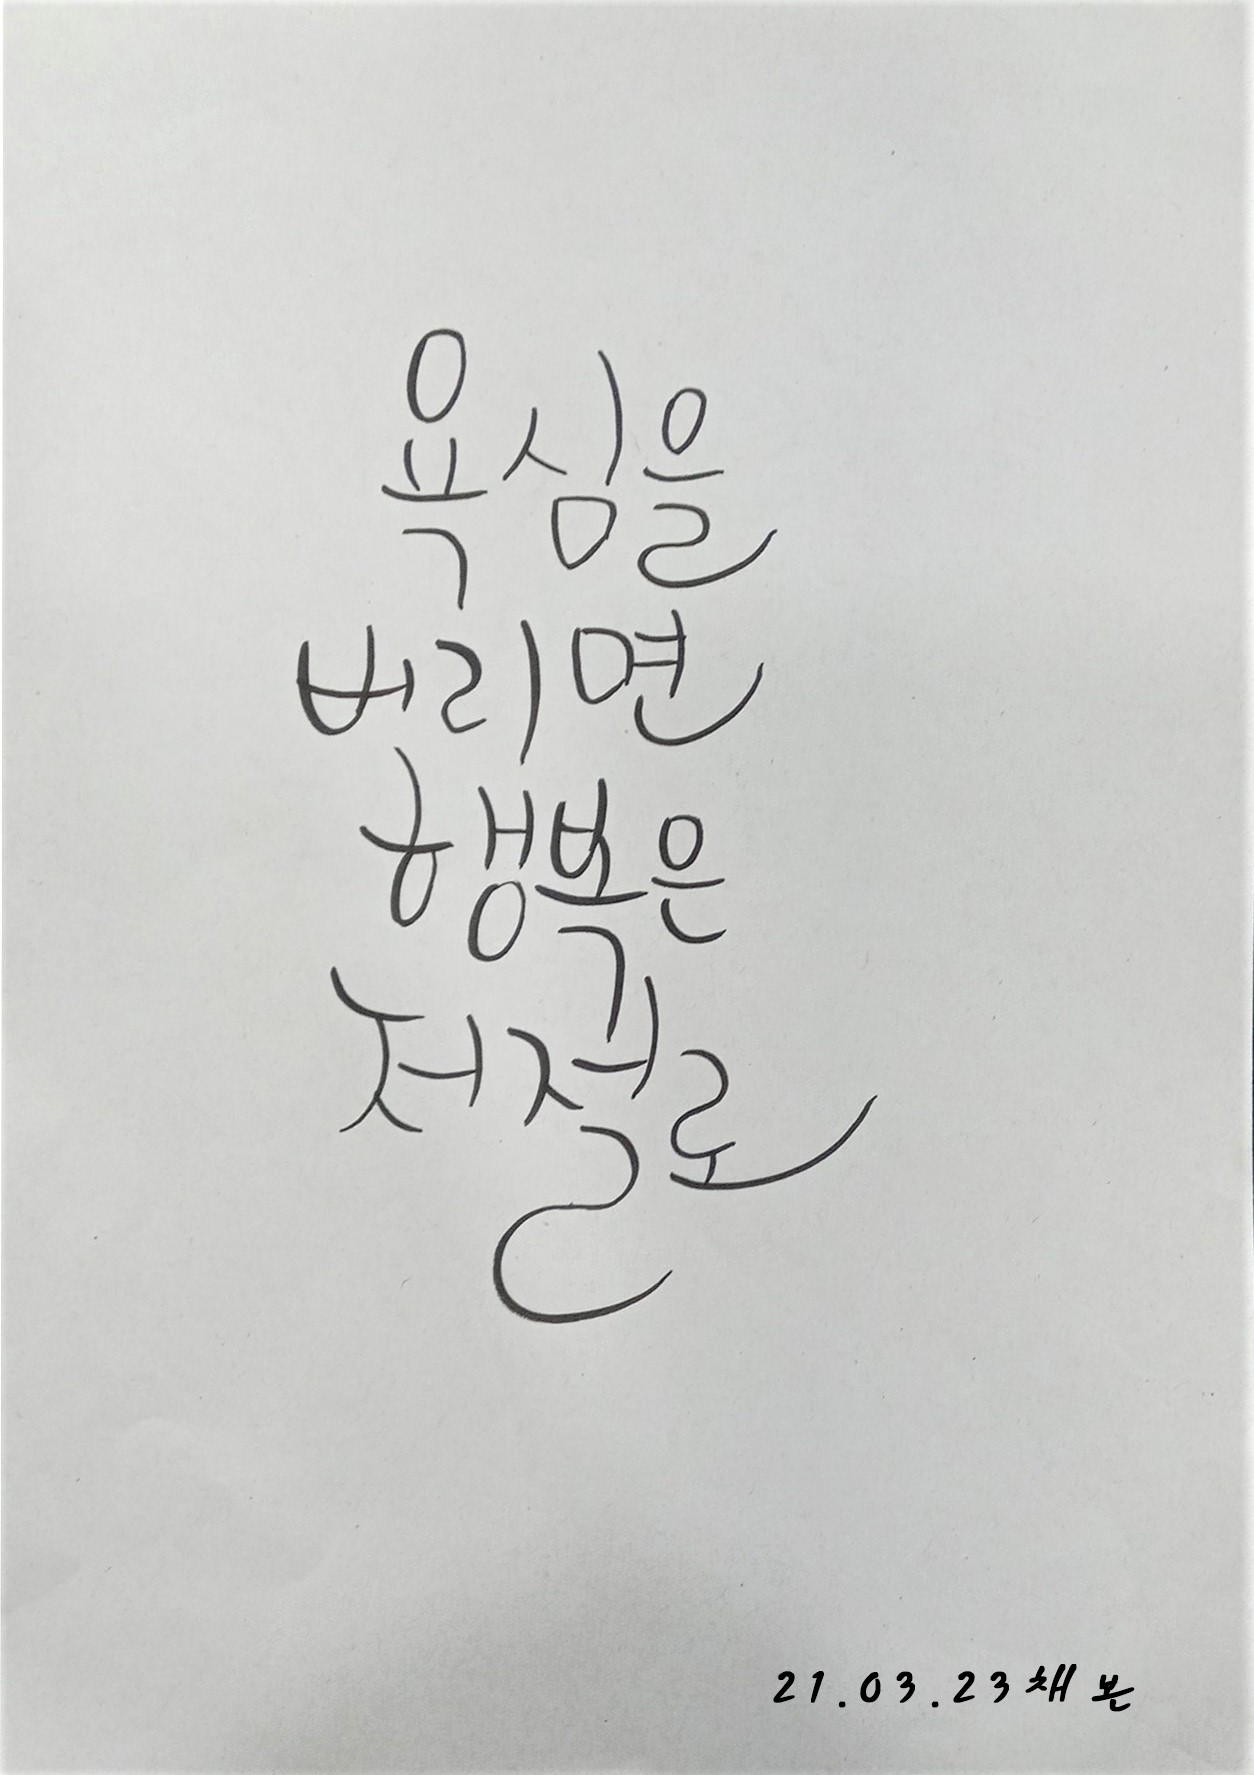 욕심을
버리면
행복은
저절로
21.03.23채본